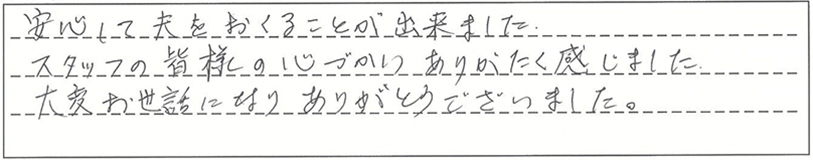 安心して夫をおくることが出来ました.
スタッフの皆様の心づかいありがたく感じました.
大変お世話になりありがとうございました。